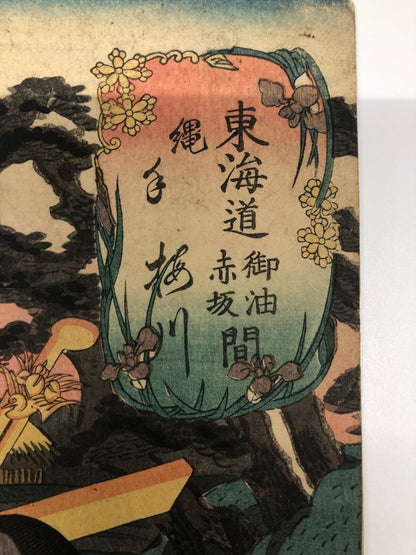 東海道
御油
赤坂
間
縄手
梅川